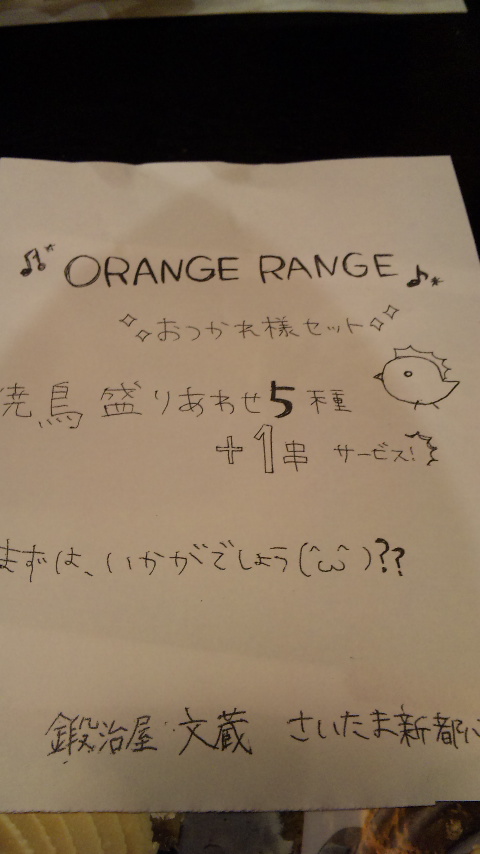 ORANGE RANGE
おつかれ様セット
焼鳥盛りあわせ5種
+1串 サービス!
まずは、いかがでしょう(^ω^)??
鍛冶屋 文蔵 さいたま新都心